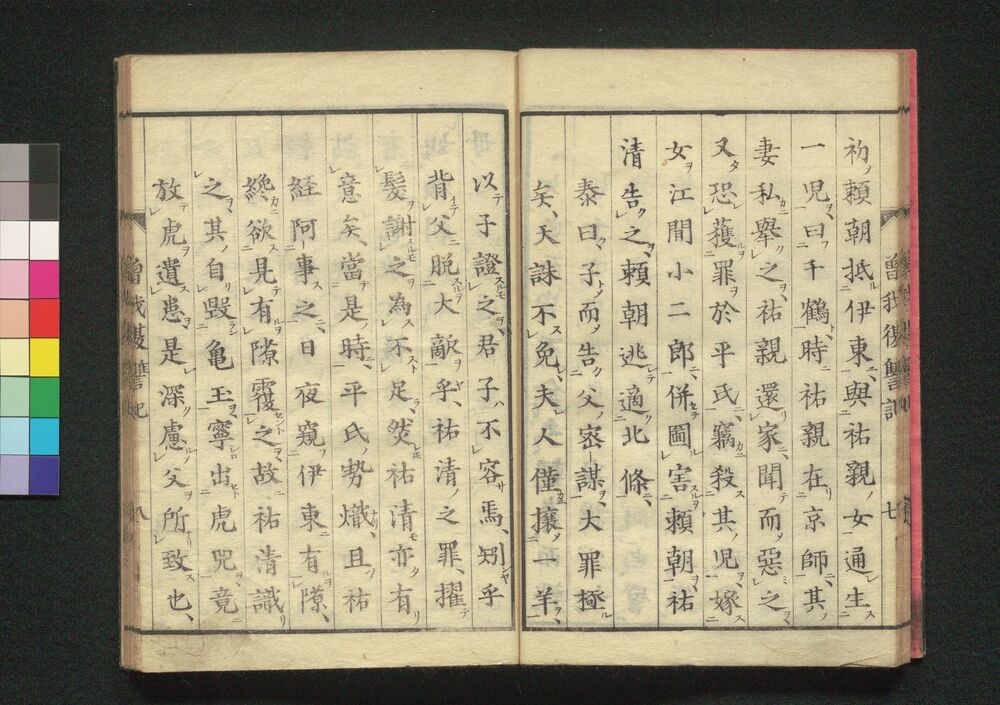 曾我復讐記 七
初頼朝抵伊東、與祐親女通生
一児、曰千鶴、時祐親在京師、其
妻私舉之、祐親還家、聞而惡之、
又恐獲罪於平氏、竊殺其児、嫁
女江間小二郎、併圖害頼朝、祐
清告之、頼朝逃適北條、
泰曰、子而告父、密謀、大罪極
矣、天誅不免、夫人僅攘羊、
以子證之、君子不容焉、矧乎
背父脱大敵乎、祐清之罪、擢
髮謝之為不足、然祐清亦有
意矣、當是時、平氏勢熾、且祐
経阿事之、日夜窺伊東有隙、
纔欲見有隙覆之、故祐清識
之其自毀亀玉、寧出虎兕、竟
放虎遺患、是深慮父所致也、
曾我復讐記 八